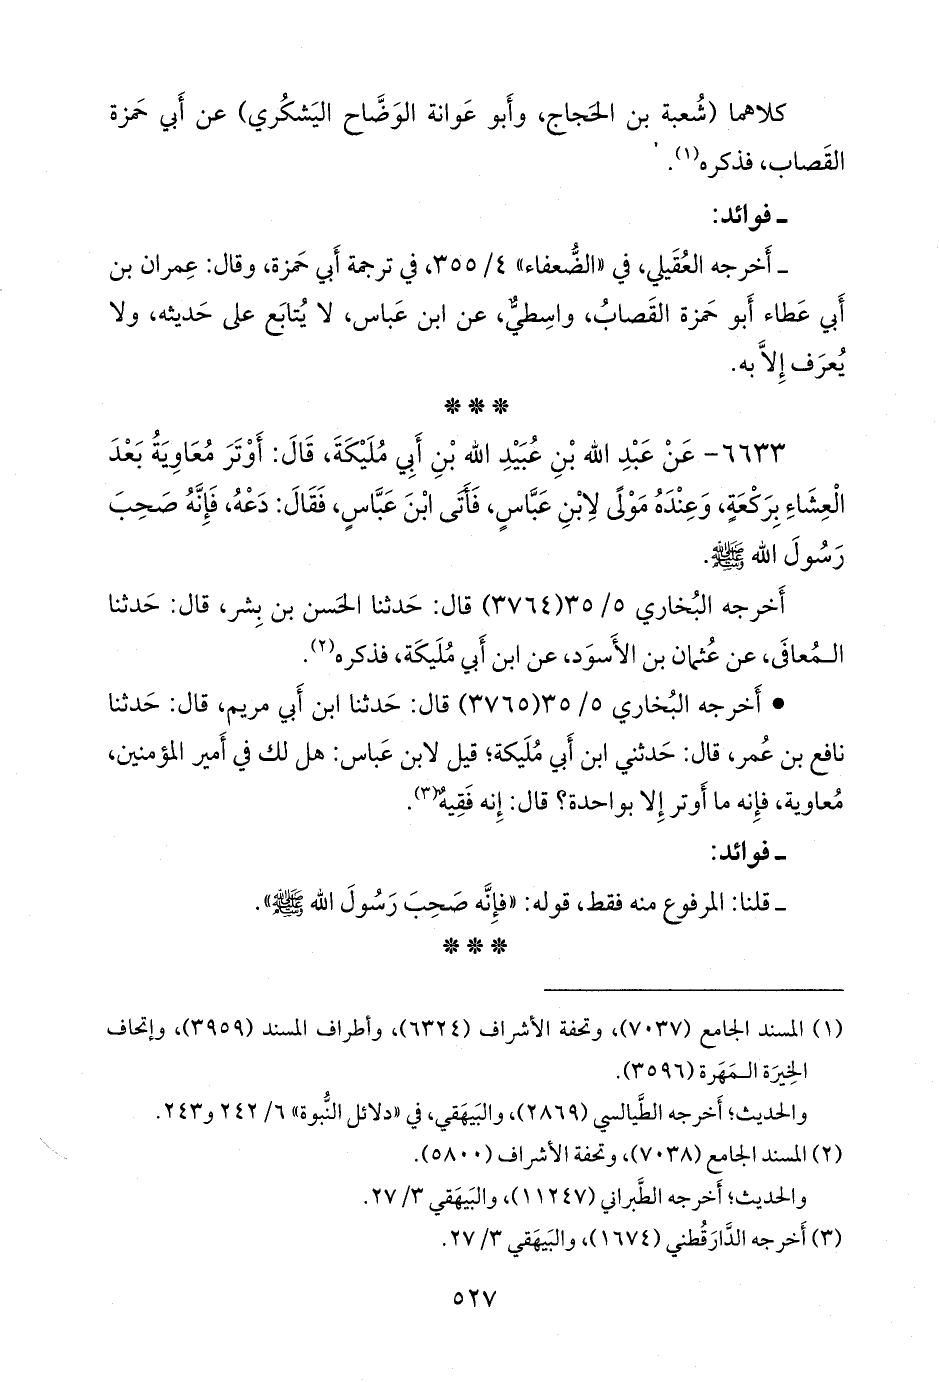 كلاهما (شُعبة بن الحَجاج، وأَبو عَوانة الوَضَّاح اليَشكُري) عن أَبي حَمزة
القَصاب، فذكره(١).
ـ فوائد:
ـ أَخرجه العُقَيلي، في «الضُّعفاء» ٤/ ٣٥٥، في ترجمة أَبي حَمزة، وقال: عِمران بن
أَبي عَطاء أَبو حَمزة القَصابُ، واسِطيٌّ، عن ابن عَباس، لا يُتابَع على حَديثه، ولا
يُعرَف إِلاَّ به.
* * *
٦٦٣٣- عَنْ عَبْدِ الله بْنِ عُبَيْدِ الله بْنِ أَبِي مُلَيْكَةَ، قَالَ: أَوْتَرَ مُعَاوِيَةُ بَعْدَ
الْعِشَاءِ بِرَكْعَةٍ، وَعِنْدَهُ مَوْلًى لِابْنِ عَبَّاسٍ، فَأَتَى ابْنَ عَبَّاسٍ، فَقَالَ: دَعْهُ، فَإِنَّهُ صَحِبَ
رَسُولَ الله ﷺ.
أَخرجه البُخاري ٥/ ٣٥(٣٧٦٤) قال: حَدثنا الحَسن بن بِشر، قال: حَدثنا
الـمُعافَى، عن عُثمان بن الأَسوَد، عن ابن أَبي مُلَيكَة، فذكره(٢).
• أَخرجه البُخاري ٥/ ٣٥(٣٧٦٥) قال: حَدثنا ابن أَبي مريم، قال: حَدثنا
نافع بن عُمر، قال: حَدثني ابن أَبي مُلَيكة؛ قيل لابن عَباس: هل لك في أَمير المؤمنين،
مُعاوية، فإِنه ما أَوتر إِلا بواحدة؟ قال: إِنه فَقِيهٌ(٣).
ـ فوائد:
ـ قلنا: المرفوع منه فقط، قوله: «فإِنَّه صَحِبَ رَسُولَ الله ﷺ».
* * *
(١) المسند الجامع (٧٠٣٧)، وتحفة الأشراف (٦٣٢٤)، وأطراف المسند (٣٩٥٩)، وإتحاف
الخِيرَة الـمَهَرة (٣٥٩٦).
والحديث؛ أَخرجه الطَّيالسي (٢٨٦٩)، والبَيهَقي، في «دلائل النُّبوة» ٦/ ٢٤٢ و٢٤٣.
(٢) المسند الجامع (٧٠٣٨)، وتحفة الأشراف (٥٨٠٠).
والحديث؛ أَخرجه الطَّبراني (١١٢٤٧)، والبَيهَقي ٣/ ٢٧.
(٣) أَخرجه الدَّارَقُطني (١٦٧٤)، والبَيهَقي ٣/ ٢٧.
٥٢٧